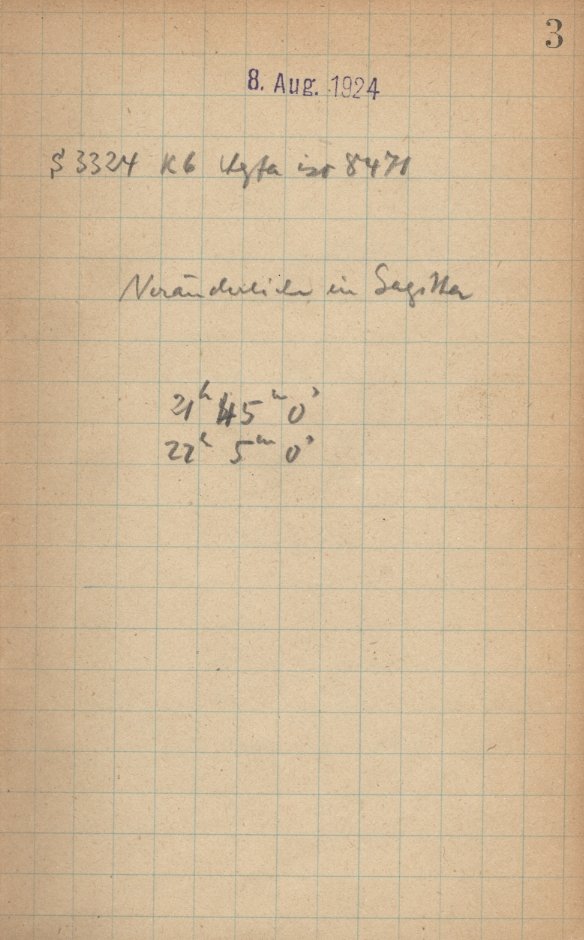 3
8. Aug. 1924
3324 K6 ist 8471
Veränderliche in Sagitta
21h 45m 0s
22h 5m 0s